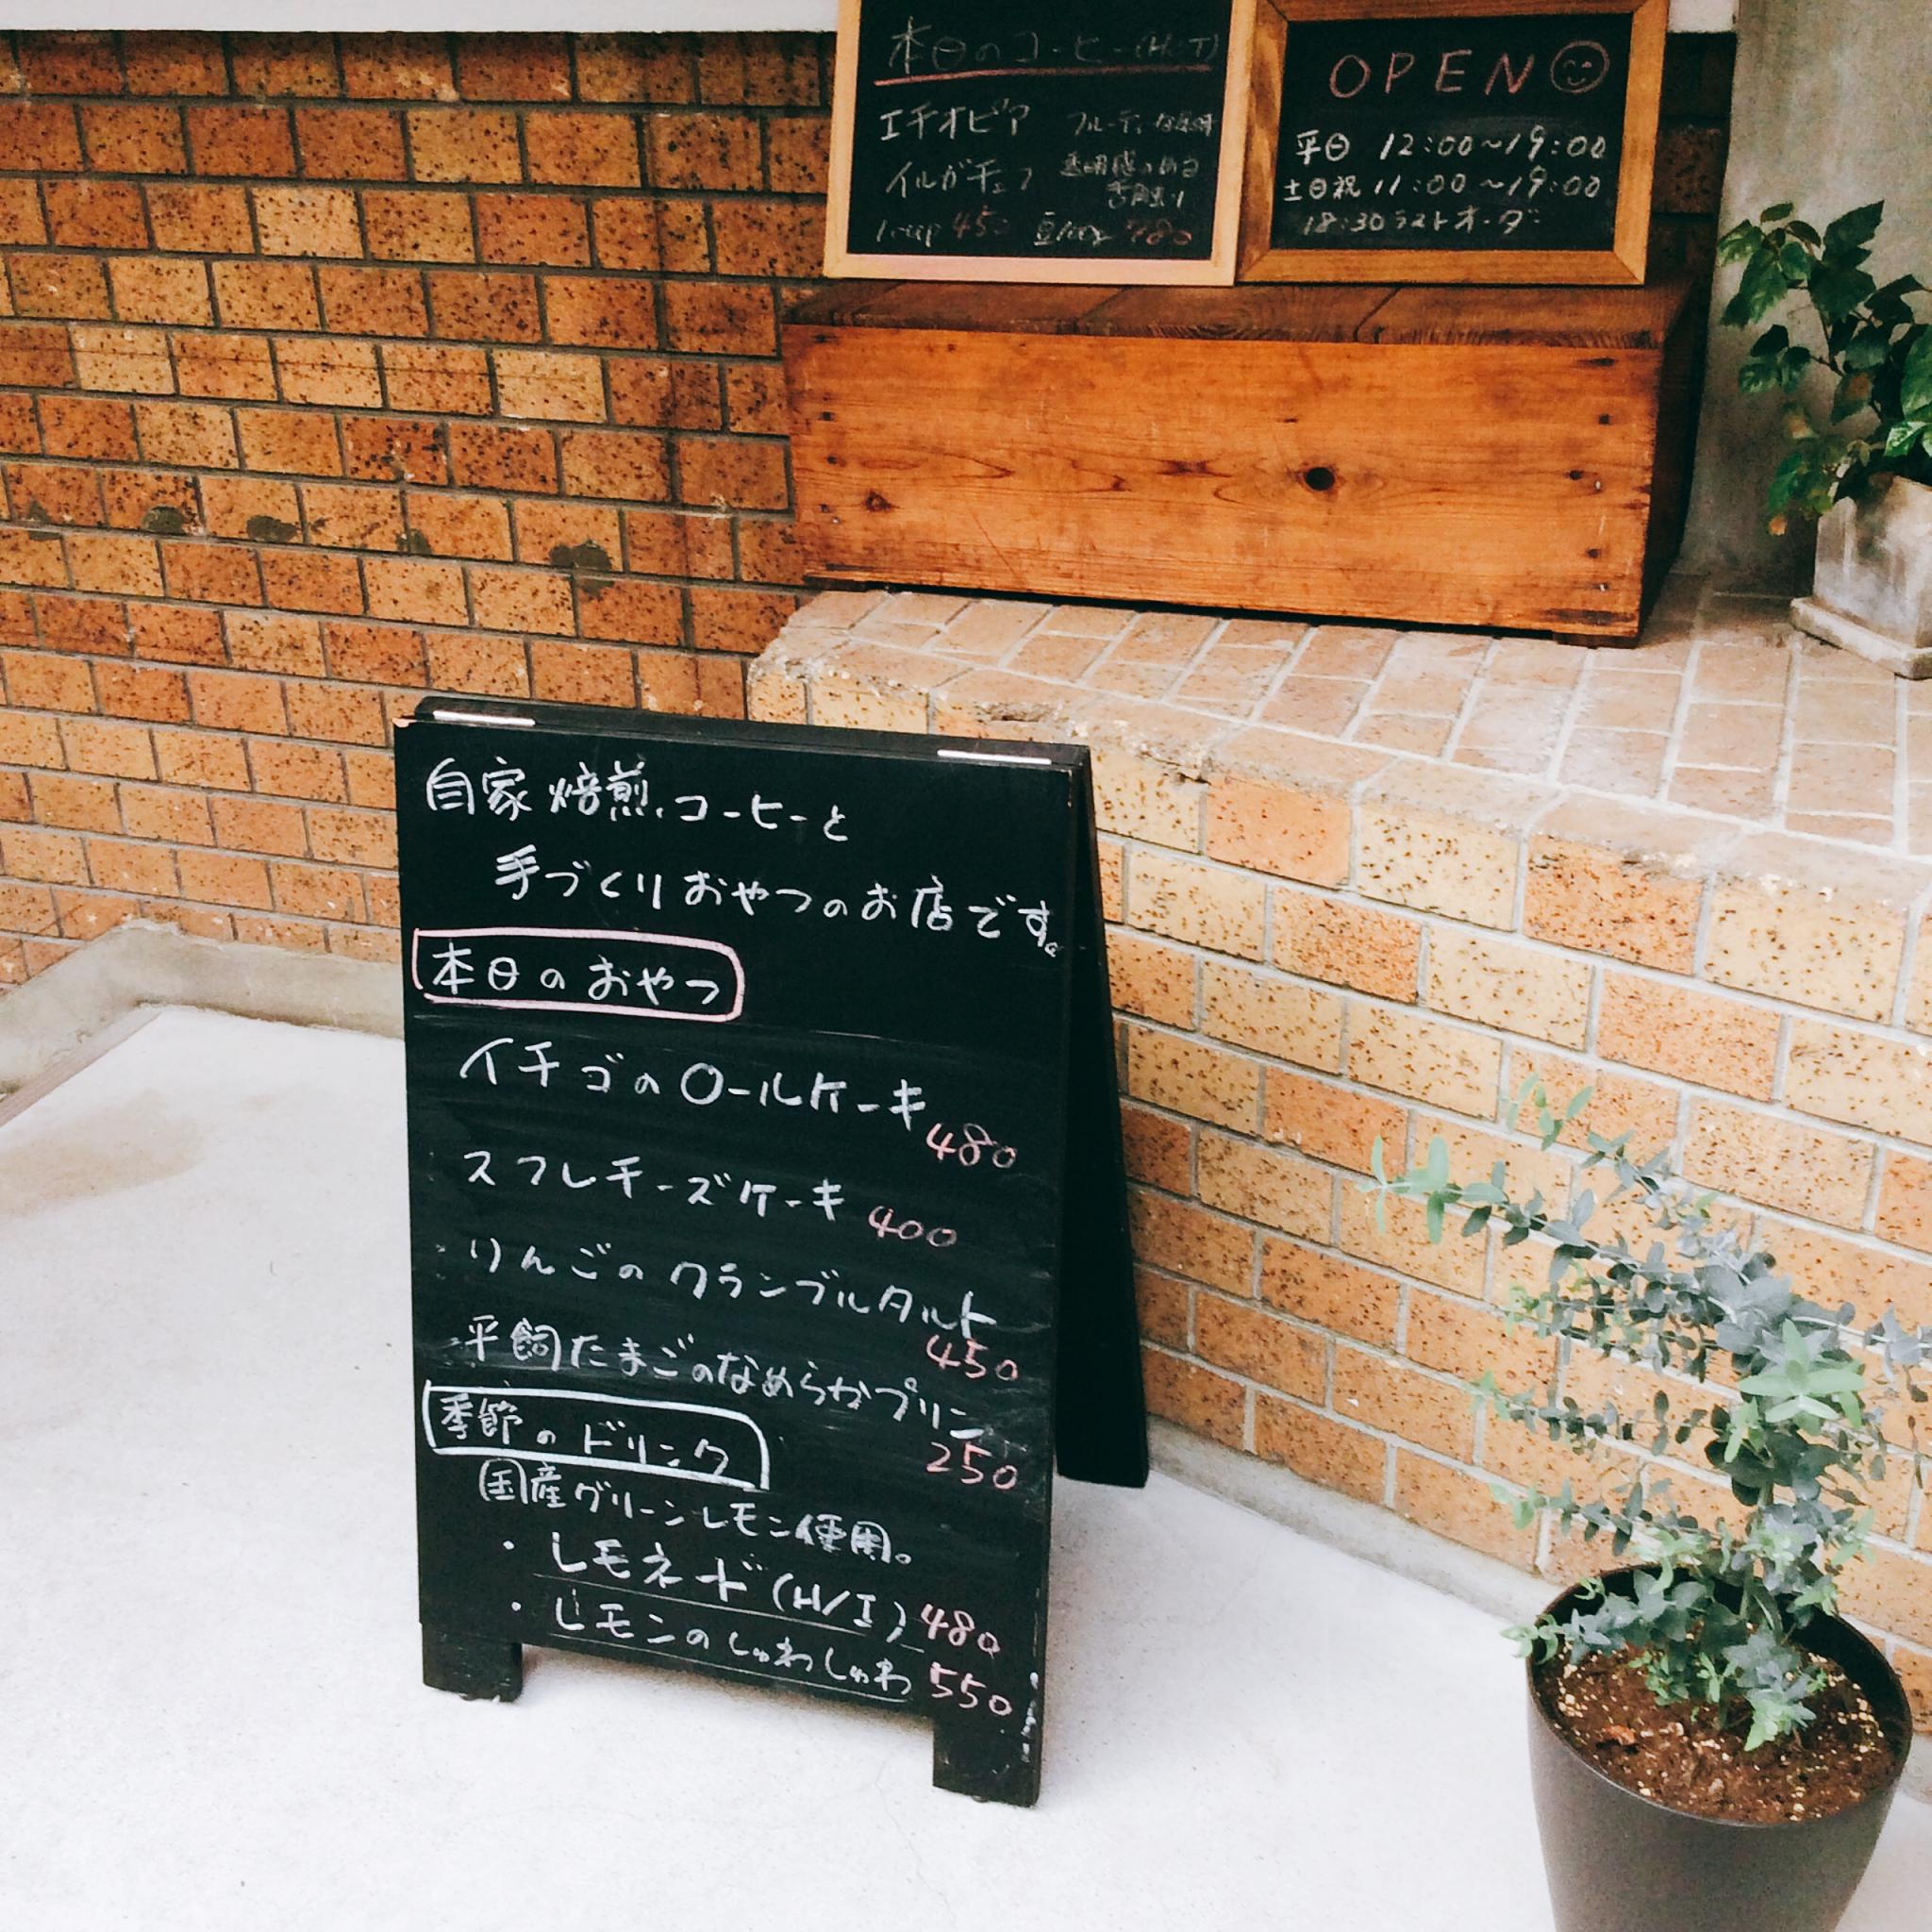 本日のコーヒー(HOT)
エチオピア
イルガチェフ
フルーティな風味
透明感のある
舌触り
1cup 450 豆100g 780
OPEN
平日 12:00~19:00
土日祝 11:00~19:00
18:30ラストオーダー
自家焙煎コーヒーと
手づくりおやつのお店です。
本日のおやつ
イチゴのロールケーキ
480
スフレチーズケーキ 400
りんごのクランブルタルト
450
平飼たまごのなめらかプリン
250
季節のドリンク
国産グリーンレモン使用。
・レモネード(H/I) 480
・レモンのしゅわしゅわ 550